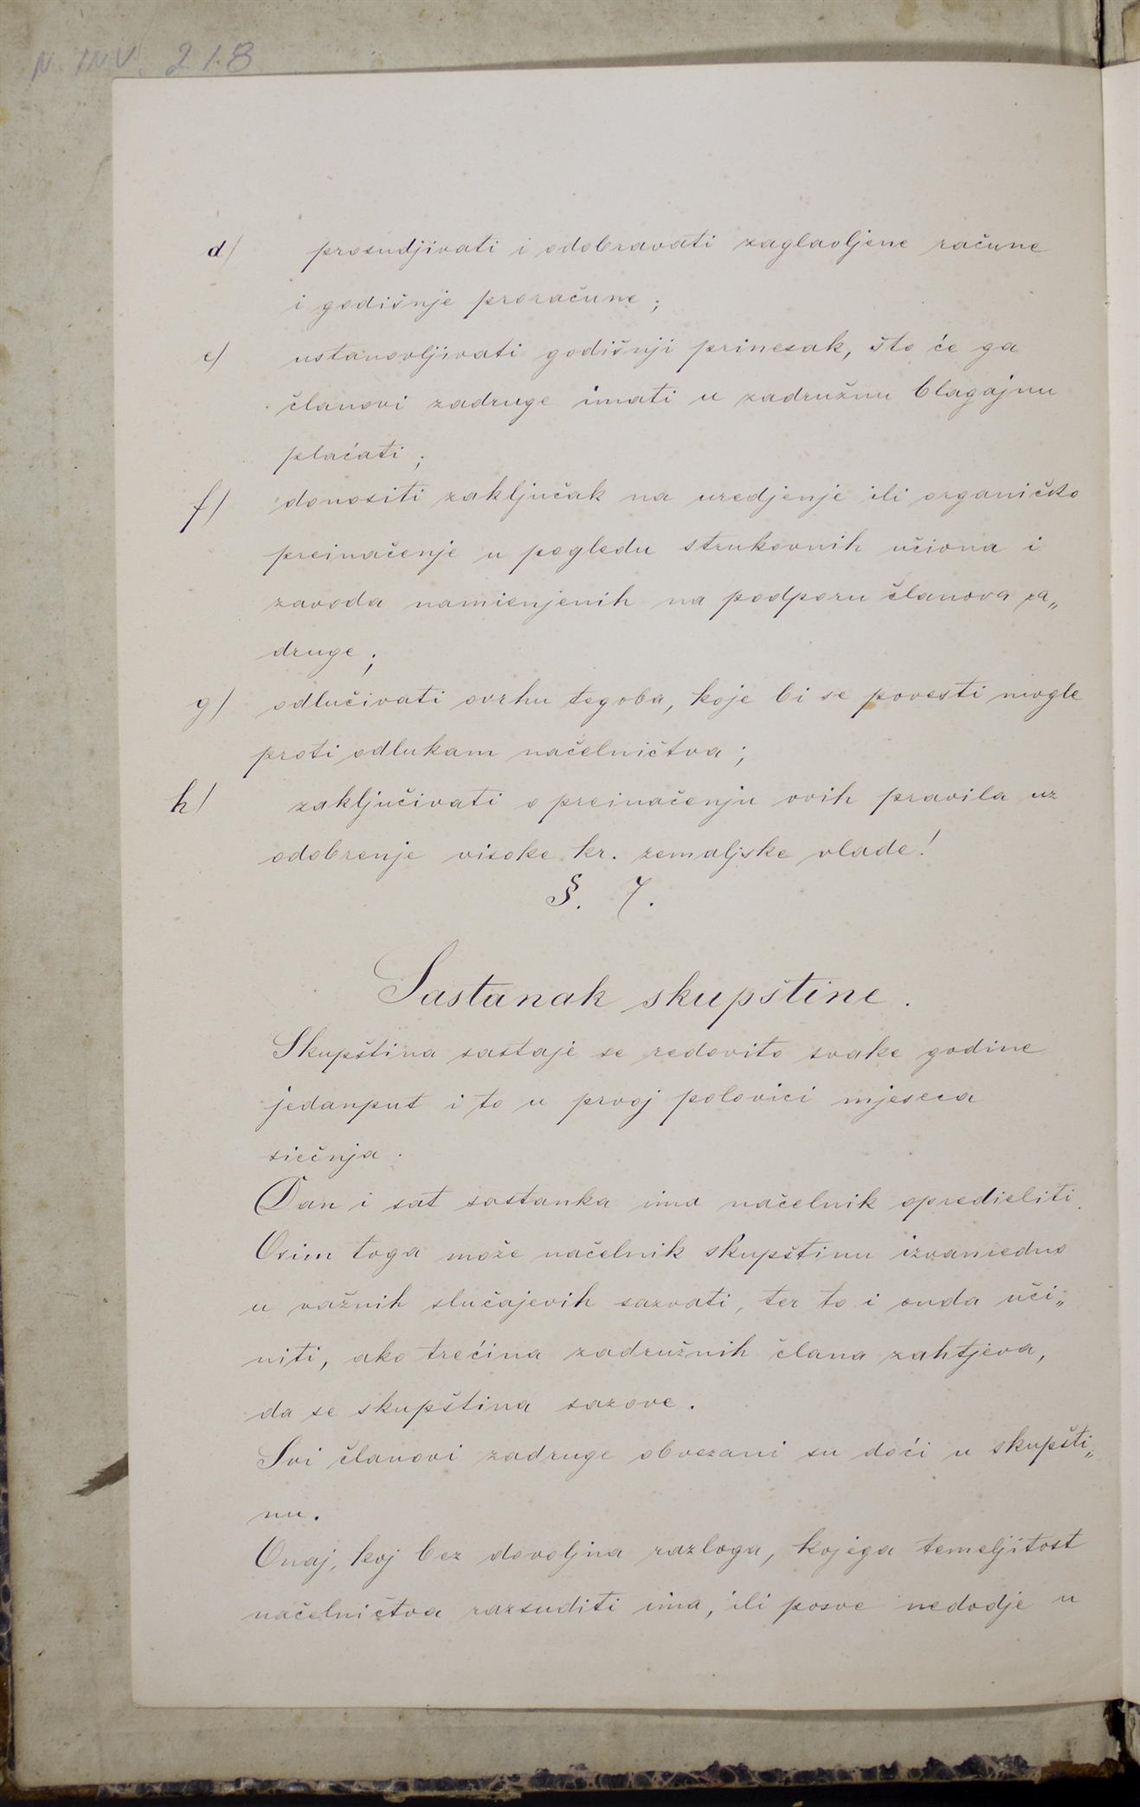 N. INV. 218
d/ prosudjivati i odobravati zaglavljene račune
i godišnje proračune;
e/ ustanovljivati godišnji prinesak, što će ga
članovi zadruge imati u zadružnu blagajnu
plaćati;
f/ donositi zaključak na uredjenje ili organičko
preinačenje u pogledu strukovnih učiona i
zavoda namienjenih na podporu članova za„
druge;
g/ odlučivati svrhu tegoba, koje bi se povesti mogle
proti odlukam načelničtva;
h/ zaključivati o preinačenju ovih pravila uz
odobrenje visoke kr. zemaljske vlade!
§. 7.
Sastanak skupštine.
Skupština sastaje se redovito svake godine
jedanput i to u prvoj polovici mjeseca
siečnja.
Dan i sat sastanka ima načelnik opredieliti.
Osim toga može načelnik skupštinu izvanredno
u važnih slučajevih sazvati, ter to i onda uči„
niti, ako trećina zadružnih člana zahtjeva,
da se skupština sazove.
Svi članovi zadruge obvezani su doći u skupšti„
nu.
Onaj, koj bez dovoljna razloga, kojega temeljitost
načelničtva razsuditi ima, ili posve nedodje u